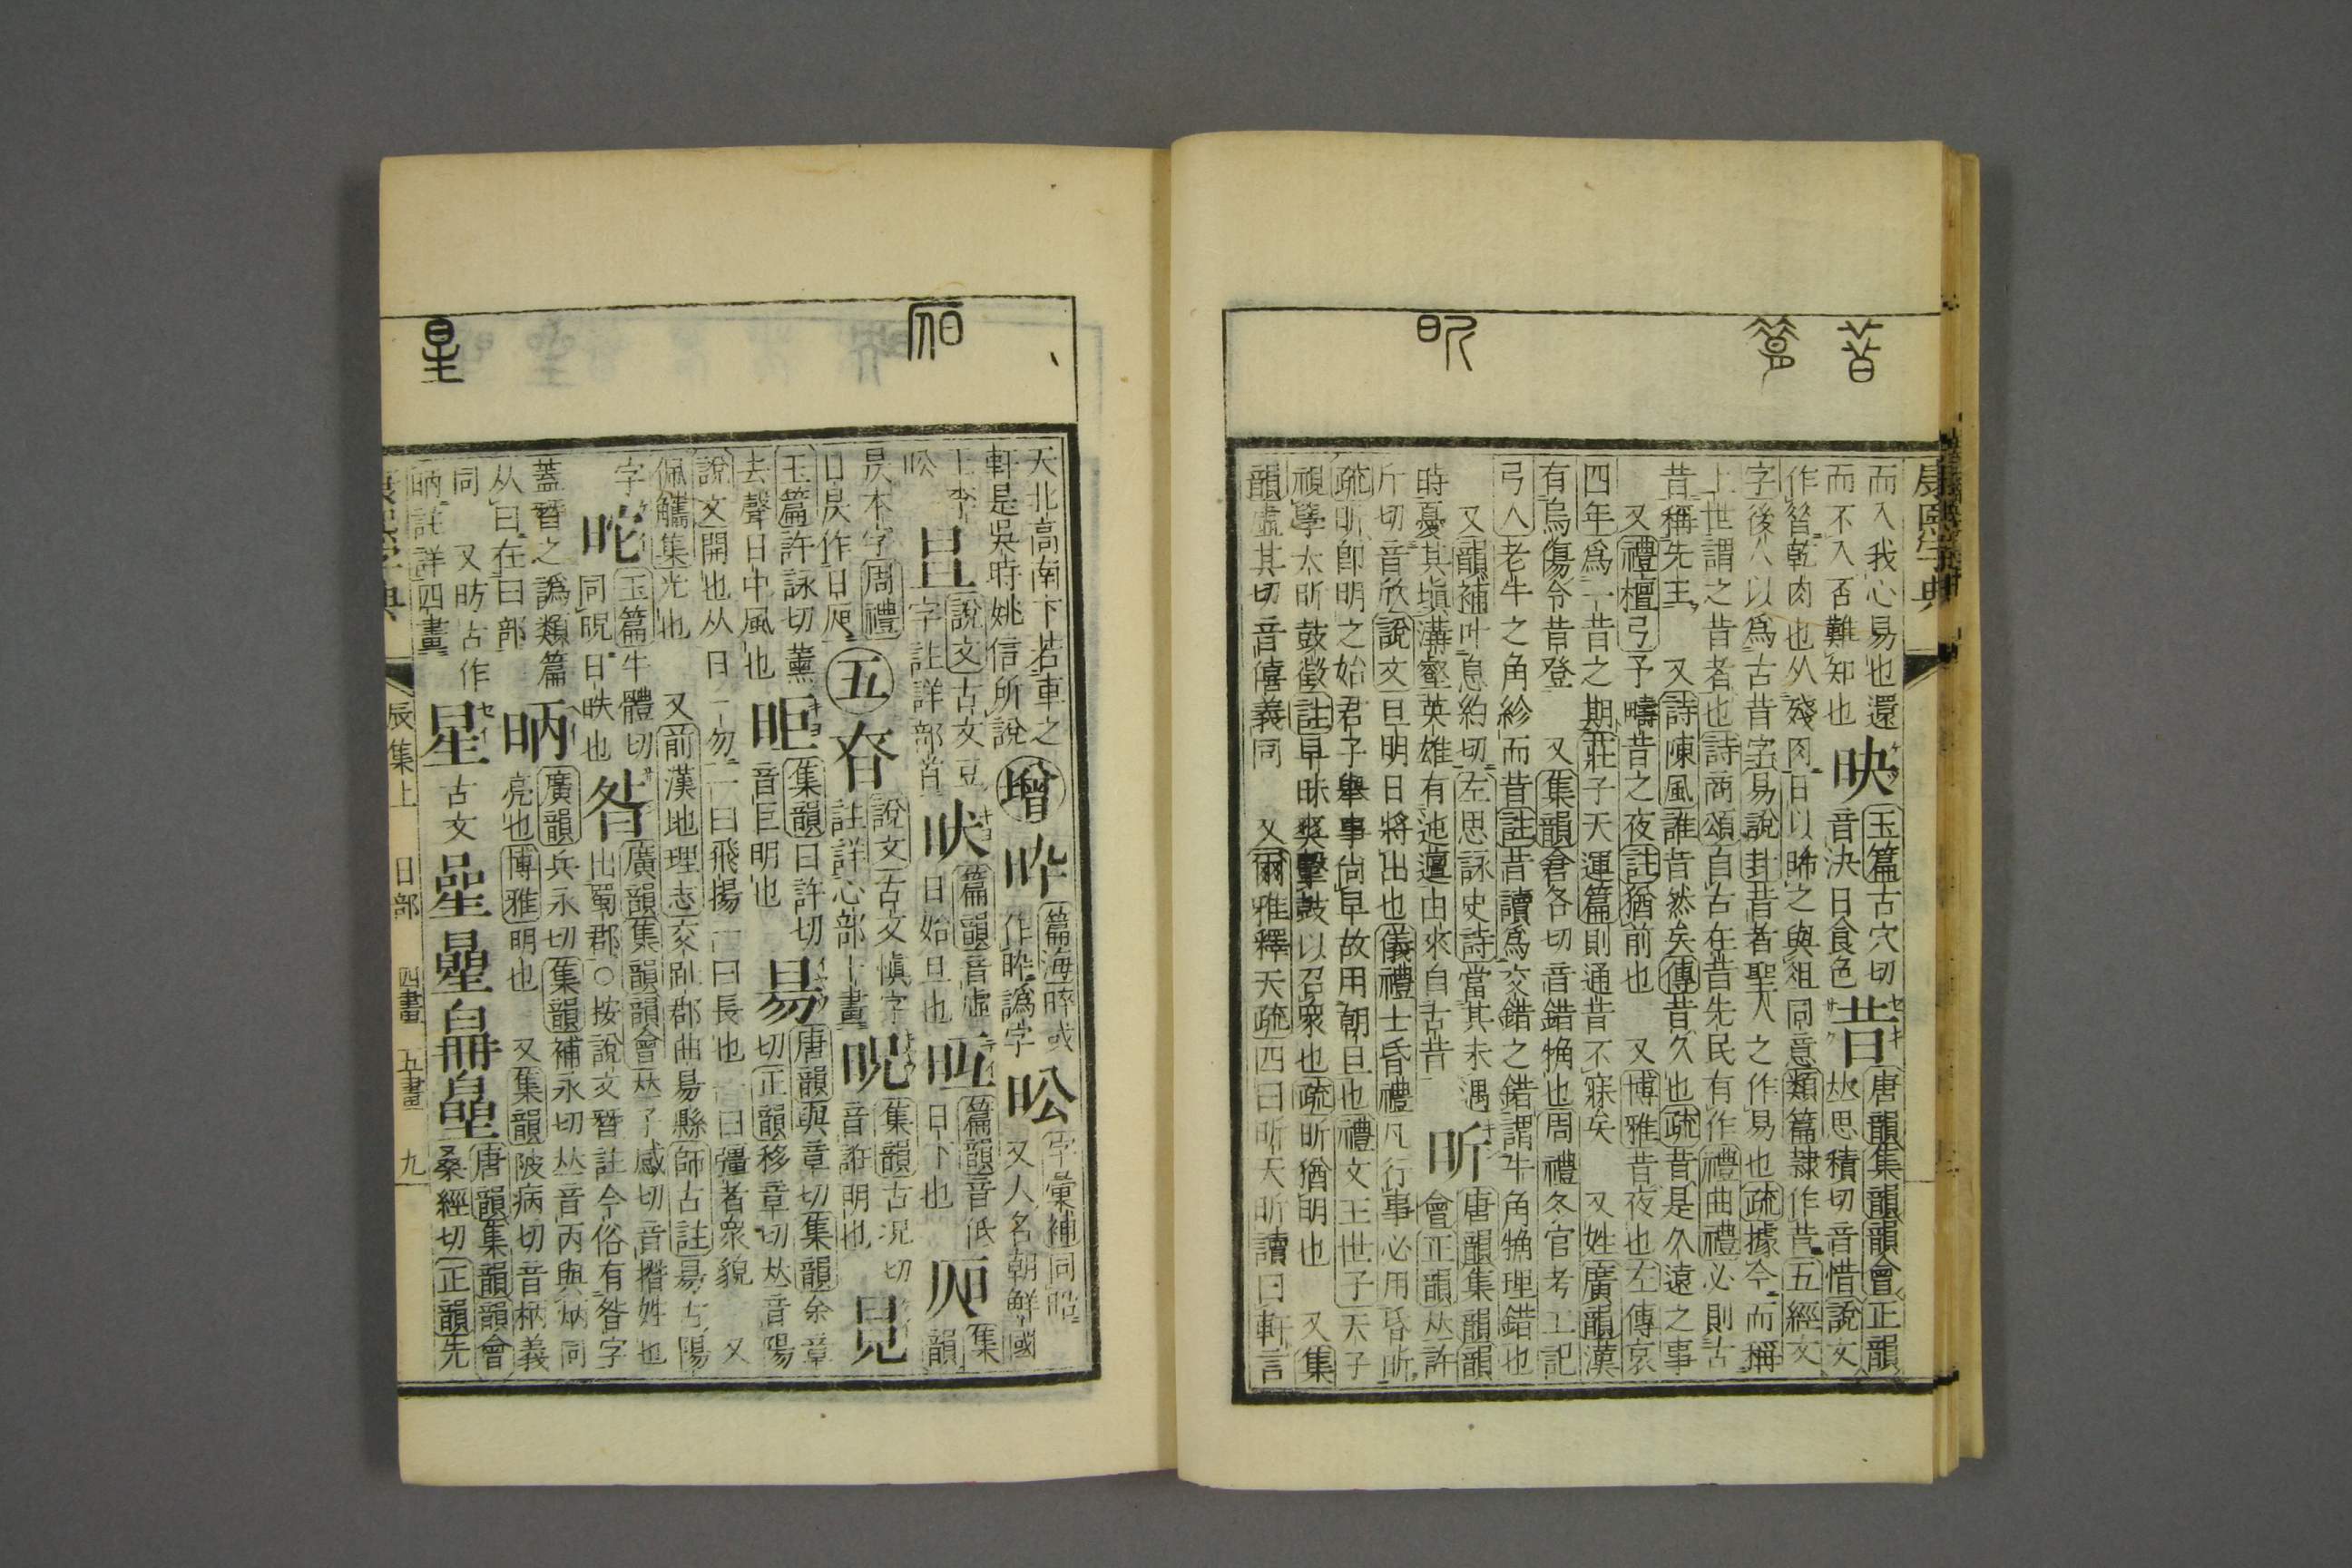 昔
昕
而入我心易也還
而不入否難知也
昳
玉篇古穴切
音決日食色
昔
唐韻集韻韻會正韻
𠀤思積切音惜說文
作㫺乾肉也从殘肉日以晞之與俎同意類篇隷作昔五經文
字後人以爲古昔字易說卦昔者聖人之作易也疏據今而稱
上世謂之昔者也詩商頌自古在昔先民有作禮曲禮必則古
昔稱先王 又詩陳風誰昔然矣傳昔久也疏昔是久遠之事
又禮檀弓予疇昔之夜註猶前也 又博雅昔夜也左傳哀
四年爲一昔之期莊子天運篇則通昔不寐矣 又姓廣韻漢
有烏傷令昔登 又集韻倉各切音錯觕也周禮冬官考工記
弓人老牛之角紾而昔註昔讀爲交錯之錯謂牛角觕理錯也
又韻補叶息約切左思詠史詩當其未遇
時憂其塡溝壑英雄有迍邅由來自古昔
昕
唐韻集韻韻
會正韻𠀤許
斤切音欣說文旦明日將出也儀禮士昏禮凡行事必用昏昕
疏昕卽明之始君子舉事尚早故用朝旦也禮文王世子天子
視學大昕鼓徵註早昧爽擊鼓以召衆也疏昕猶明也 又集
韻虛其切音僖義同 又爾雅釋天疏四曰昕天昕讀曰軒言
康熙字典
星
天北高南下若車之
軒是吳時姚信所說
增
昨
篇海晬或
作昨譌字
昖
字彙補同昭
又人名朝鮮國
王李
昖
昷
說文古文豆
字註詳部首
昹
篇韻音虛
日始旦也
㫝
篇韻音低
日下也
𣅳
集
韻
昃本字周禮
日昃作日𣅳
五
昚
說文古文愼字
註詳心部十畫
昵
集韻古況切
音誑明也
㫤
玉篇許詠切薰
去聲日中風也
昛
集韻日許切
音巨明也
昜
唐韻與章切集韻余章
切正韻移章切𠀤音陽
說文開也从日一勿一曰飛揚一曰長也一曰彊者衆貌 又
佩觿集光也 又前漢地理志交趾郡曲昜縣師古註昜古陽
字
㫆
玉篇牛體切
同晲日昳也
昝
廣韻集韻韻會𠀤子感切音撍姓也
出蜀郡○按說文朁註今俗有昝字
蓋朁之譌類篇
从曰在曰部
昞
廣韻兵永切集韻補永切𠀤音丙與炳同
亮也博雅明也 又集韻陂病切音柄義
同 又昉古作
昞註詳四畫
星
古文
曐
唐韻集韻韻會
桑經切正韻先
辰集上 日部 四畫 五畫 九